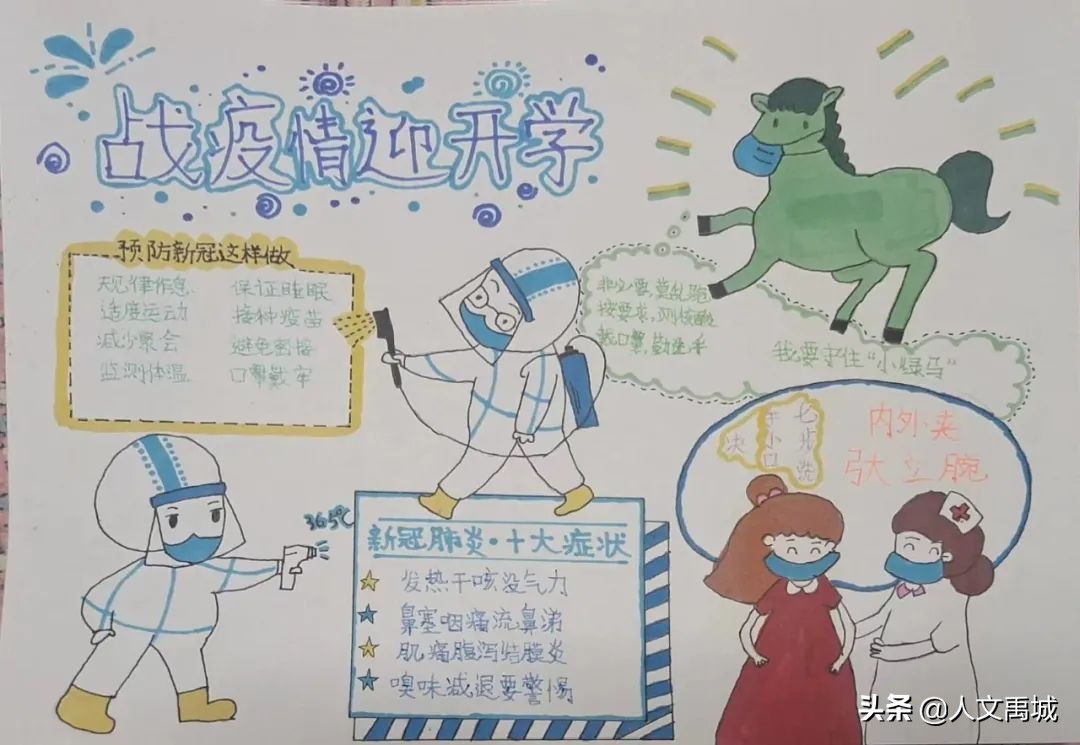 战疫情迎开学
预防新冠这样做
规律作息 保证睡眠
适度运动 接种疫苗
减少聚会 避免密接
监测体温 口罩戴牢
非必要,莫乱跑
按要求,测核酸
戴口罩,勤洗手
我要守住“小绿马”
七步洗
手小口
决
内外夹
弓大立腕
36.5℃
新冠肺炎·十大症状
发热干咳没气力
鼻塞咽痛流鼻涕
肌痛腹泻结膜炎
嗅味减退要警惕
头条 @人文禹城